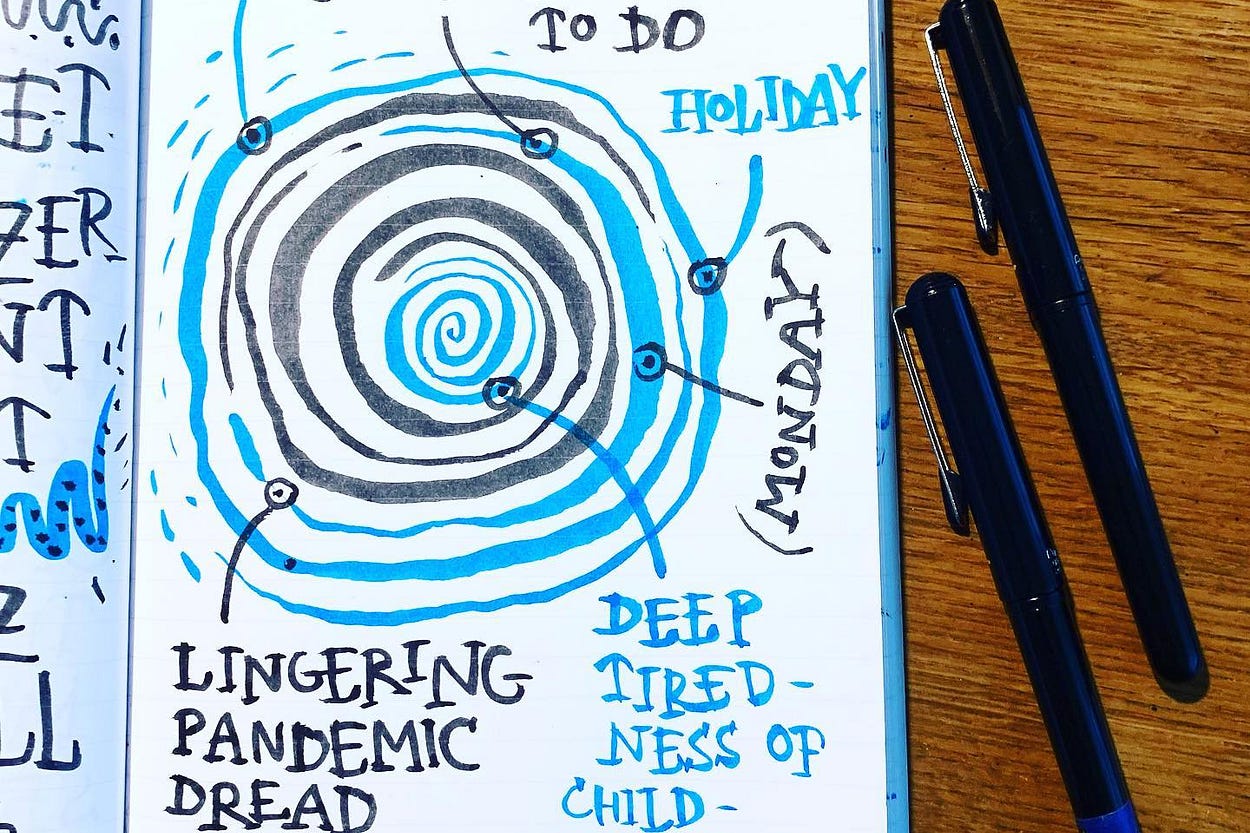 TO DO
HOLIDAY
(MONDAY)
LINGERING
PANDEMIC
DREAD
DEEP
TIRED-
NESS OF
CHILD-